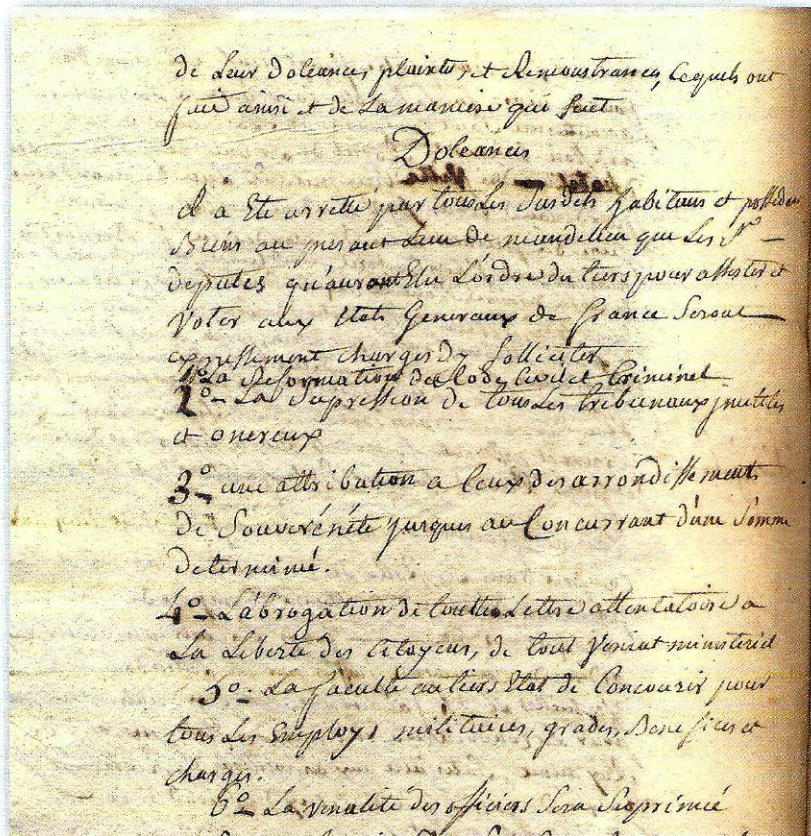 de Leur doleances, plaintes, et Remonstrances, Lequels ont
fait ainsi et de La maniere qui suit
Doleances
il a Eté arretté par tous Les Susdits habitans et possedans
Biens au presant Lieu de mandelieu que Les Srs
deputés qu'auront Elu L'ordre du tiers pour assister et
Voter aux Etats Generaux de france Seront
expressement chargés de Solliciter
1º La Reformation du Code Civil et Criminel
2º La Supression de tous Les tribunaux inutiles
et onereux
3º une attribution a Ceux des arrondissements
de Souvérénété jusques au Concurrant d'une Somme
determiné.
4º L'abrogation de touttes Lettre attentatoire a
La Liberté des Citoyens, de tout ministeriel
5º La faculté au tiers Etat de Concourir pour
tous Les Employs militaires, grades, Benefices et
charges.
6º La venalité des officiers Sera Suprimée